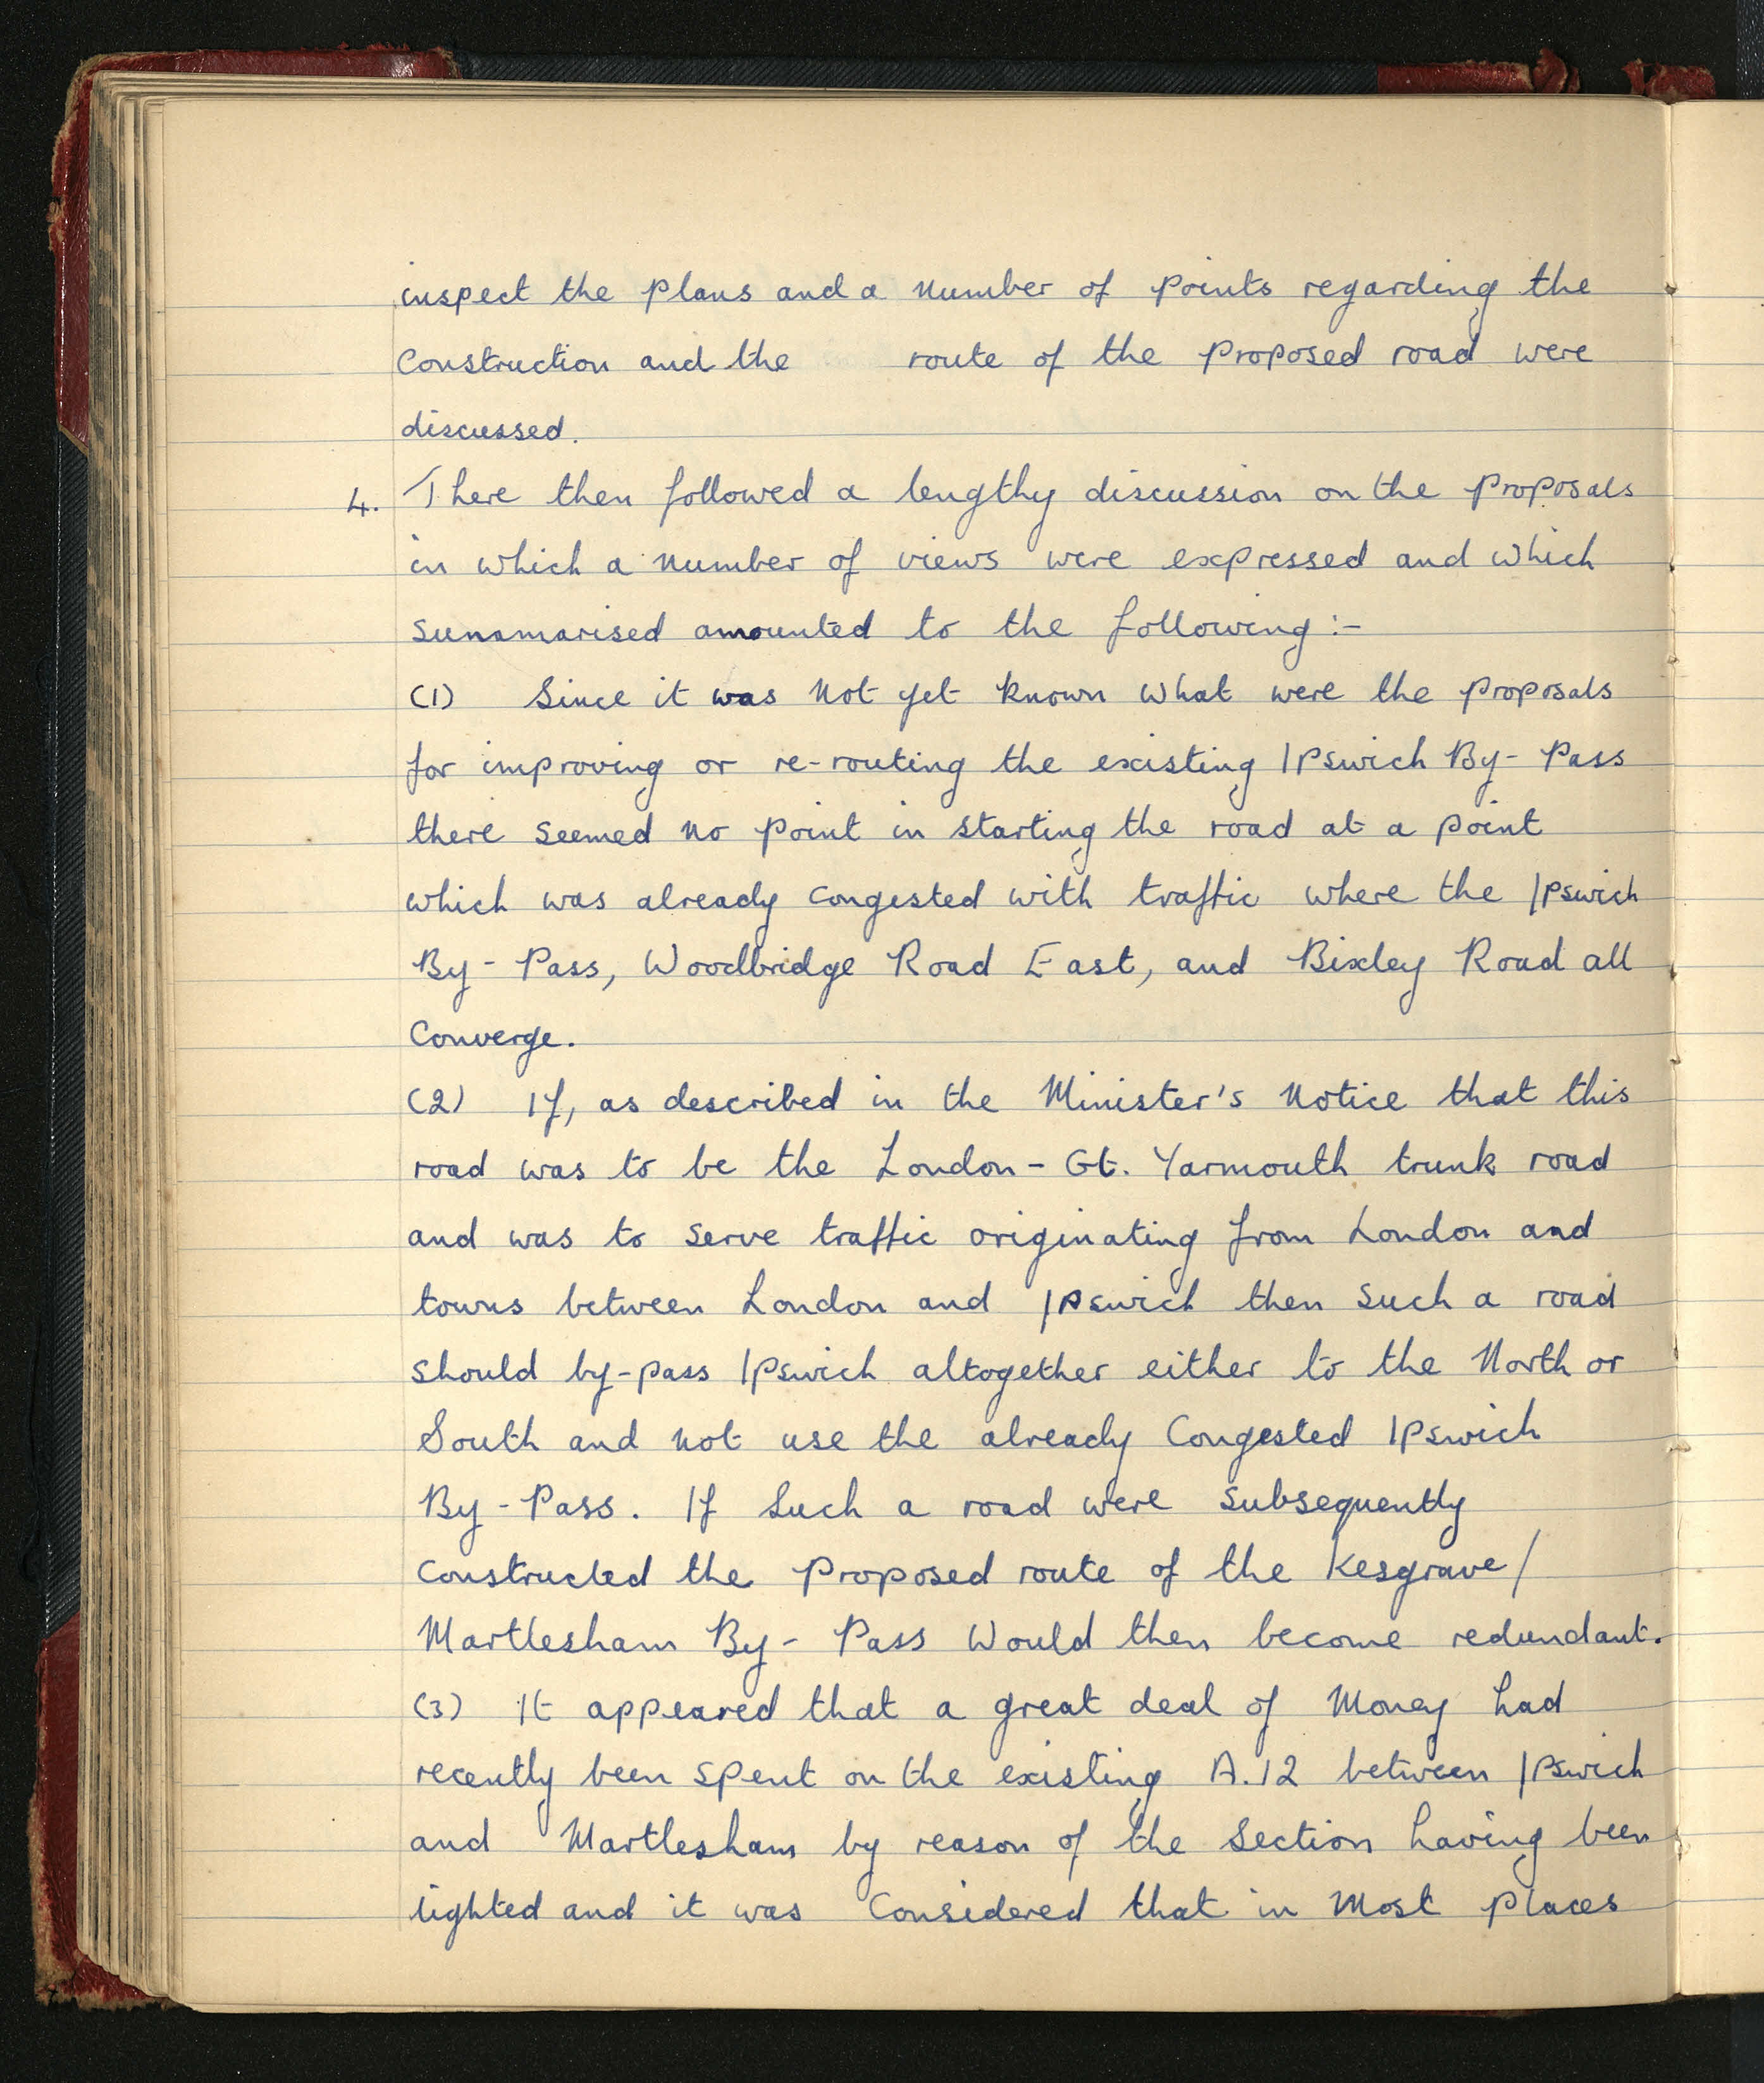 inspect the plans and a number of points regarding the
construction and the route of the proposed road were
discussed.
4. There then followed a lengthy discussion on the proposals
in which a number of views were expressed and which
summarised amounted to the following :-
(1) Since it was not yet known what were the proposals
for improving or re-routing the existing Ipswich By-Pass
there seemed no point in starting the road at a point
which was already congested with traffic where the Ipswich
By-Pass, Woodbridge Road East, and Bixley Road all
converge.
(2) If, as described in the Minister's notice that this
road was to be the London - Gt. Yarmouth trunk road
and was to serve traffic originating from London and
towns between London and Ipswich then such a road
should by-pass Ipswich altogether either to the North or
South and not use the already congested Ipswich
By-Pass. If such a road were subsequently
constructed the proposed route of the Kesgrave/
Martlesham By-Pass would then become redundant.
(3) It appeared that a great deal of money had
recently been spent on the existing A.12 between Ipswich
and Martlesham by reason of the section having been
lighted and it was considered that in most places